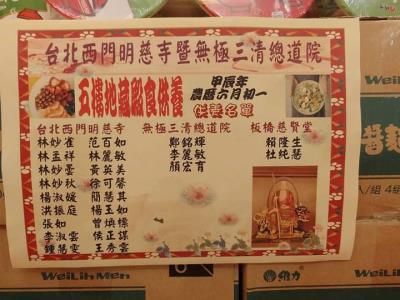 台北西門明慈寺暨無極三清總道院
五樓地藏殿食供養
甲辰年
農曆六月初一
供養名單
台北西門明慈寺 無極三清總道院 板橋慈賢堂
林妙雀 范百如 鄭銘輝 賴隆生
林孟祥 林麗敏 李麗敏 杜純慧
林妙雯 黃英美 顏宏育
林妙秋 徐可馨
楊淑媛 簡慧真
洪振庭 楊玉如
張如 曾煥樑
李淑雲 侯正謀
鍾慧雯 王秀雲
WeiLih
醬麵
入/組 4組
WeiLihMen
維力
WeiLihMen